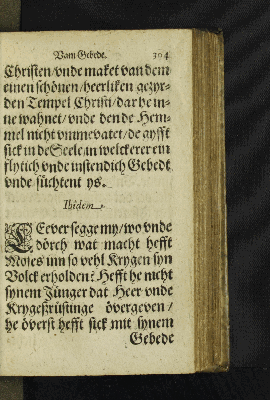 Vam Gebede. 304
Christen/vnde maket van dem
einen schönen/heerliken gezyr-
den Tempel Christi/dar he in-
ne wahnet/vnde den de Hem-
mel nicht vmmevatet/de gyfft
sick in de Seele/in welckerer ein
flytich vnde instendich Gebedt
vnde süchtent ys.
Ibidem.
LEever segge my/wo vnde
dörch wat macht hefft
Moses inn so vehl Krygen syn
Volck erholden? Hefft he nicht
synem Jünger dat Heer vnde
Krygeßrüstinge övergeven/
he överst hefft sick mit synem
Gebede